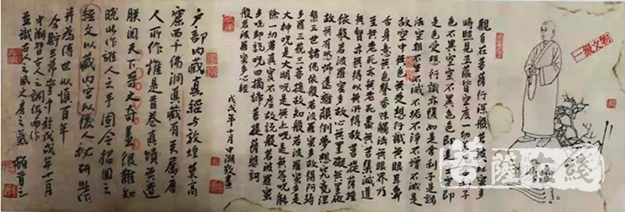 一級文物
觀自在菩薩行深般若波羅蜜多
時照見五蘊皆空度一切苦厄
色不異空空不異色色即是空空即
是色受想行識亦復如是舍利子是諸
法空相不生不滅不垢不淨不增不減是
故空中無色無受想行識無眼耳鼻
舌身意無色聲香味觸法無眼界乃
至無老死亦無老死盡無苦集滅道
無智亦無得以無所得故菩提薩埵
依般若波羅蜜多故無罣礙無罣礙
故無有恐怖遠離顛倒夢想究竟涅
槃三世諸佛依般若波羅蜜多故得阿耨
多羅三藐三菩提故知般若波羅蜜多是
大神咒是大明咒是無上咒是無等等咒能
除一切苦真實不虛故說般若波羅蜜
多咒即說咒曰揭諦菩提薩婆訶
般若波羅蜜多心經
戊戌年十月中湖敬書
戶部內藏真經與敦煌莫高
窟西千佛洞真藏有关屬唐
人所作誰是首卷真蹟無道
朕閱天下奇文奇墨很難知
曉此作誰人之手國令招國之
經文以藏內宮以後人研此作
并為傳世以慎百年
戊戌年十月
菩萨在线